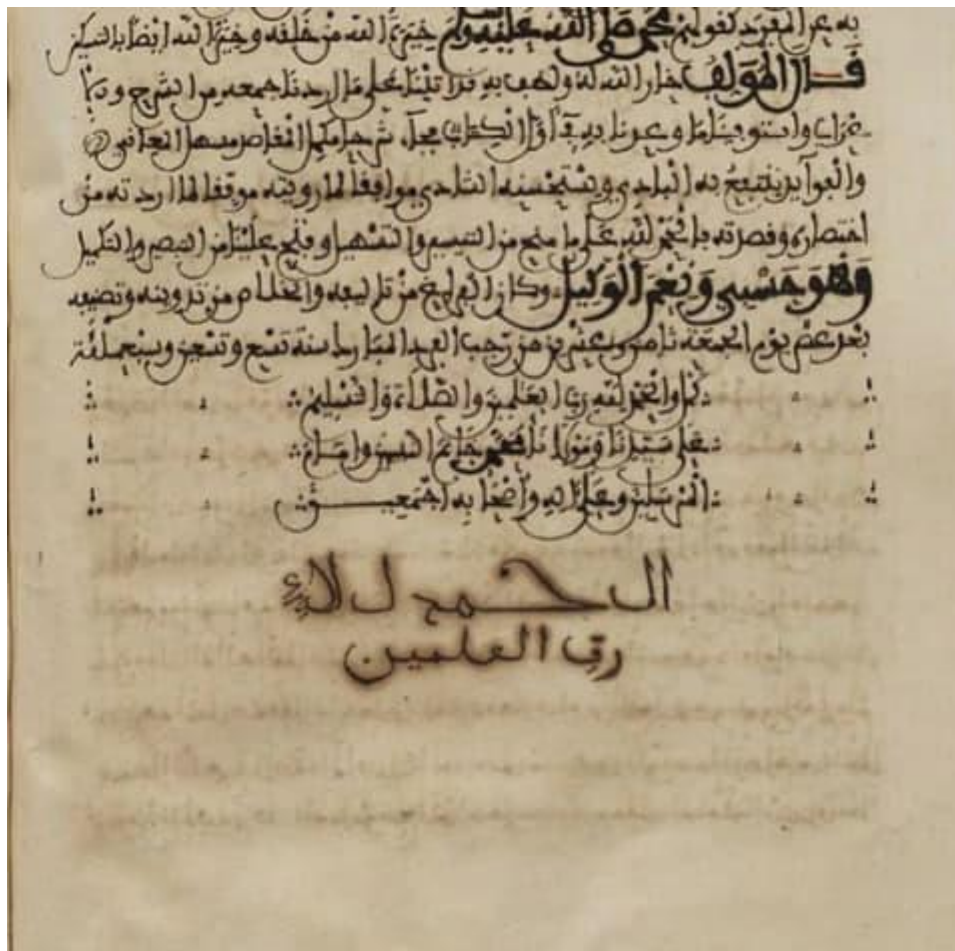 به عن المفرد كقولهم محمد صلى الله عليه وسلم خيرة الله من خلقه وخيرة الله ايضا بالتسكين
قال المؤلف خار الله له ولطف به قد اتينا على ما اردنا جمعه من الشرح
واستوفينا ما وعدنا به في اول الكتاب سهل المعاني
والفوايد ينتفع به البادي ويستحسنه الشادي موافقا لما رويته موفقا لما اردته من
اختصاره وقصرته فالحمد لله على ما منح من التيسير والتسهيل وفتح علينا من التبصير والتكميل
وهو حسبي ونعم الوكيل وكان الفراغ من تاليفه والخلاص من تدوينه وتصنيفه
بعد عصر يوم الجمعة ثامن وعشرين من رجب الفرد المبارك سنة تسع وتسعين وسبعمائة
كمل والحمد لله رب العلمين والصلاة والتسليم
على سيدنا ومولانا محمد خاتم النبيين وامام
المرسلين وعلى اله واصحابه اجمعين
الحمد لله
رب العلمين